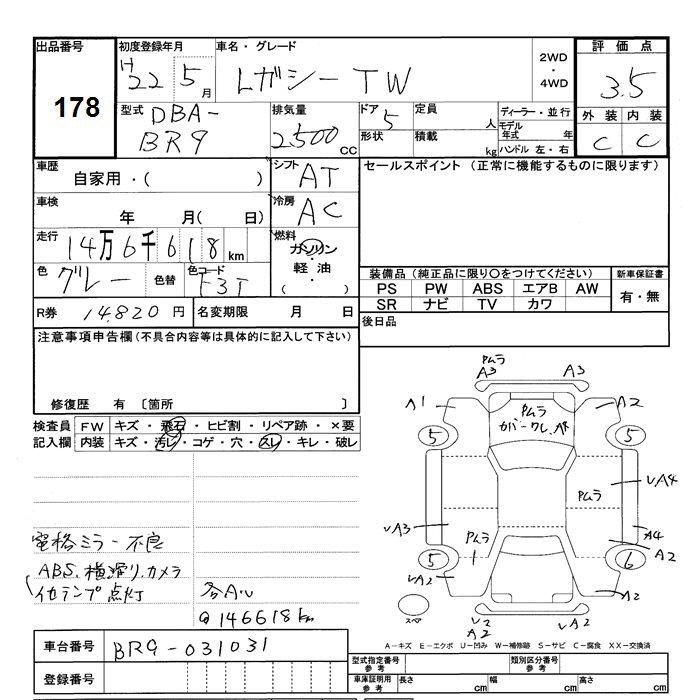 出品番号 初度登録年月 車名・グレード 2WD・4WD 評価点
178 H 22 5月 Lガシー TW 3.5
型式 DBA-BR9 排気量 2500 CC ドア 5 定員 人 ディーラー・並行 外装 内装
形状 積載 kg モデル年式 年 ハンドル 左・右 C C
車歴 自家用・( ) シフト AT セールスポイント (正常に機能するものに限ります)
車検 年 月( 日) 冷房 AC
走行 14万6千618km 燃料 ガソリン・軽油 ( )
色 グレー 色替 色コード F3T 装備品 (純正品に限り○をつけてください) 新車保証書
PS PW ABS エアB AW 有・無
SR ナビ TV カワ
R券 14,820円 名変期限 月 日 後日品
注意事項申告欄 (不具合内容等は具体的に記入して下さい)
修復歴 有 〔箇所 〕
検査員 FW キズ・飛石・ヒビ割・リペア跡・×要
記入欄 内装 キズ・汚レ・コゲ・穴・スレ・キレ・破レ
Pムラ
A3 A3
A1 A2
Pムラ
カバーワレ
5 5
Pムラ
A3 A4
A4
Pムラ
A2
5 1 6
A2 A2
スペ
A2
電格ミラー不良
ABS.横滑り.カメラ
他ランプ点灯
@146618km
A-キズ E-エクボ U-凹み W-補修跡 S-サビ C-腐食 XX-交換済
車台番号 BR9-031031
登録番号
型式指定番号 参考 類別区分番号 参考
車庫証明用 参考 長さ cm 幅 cm 高さ cm